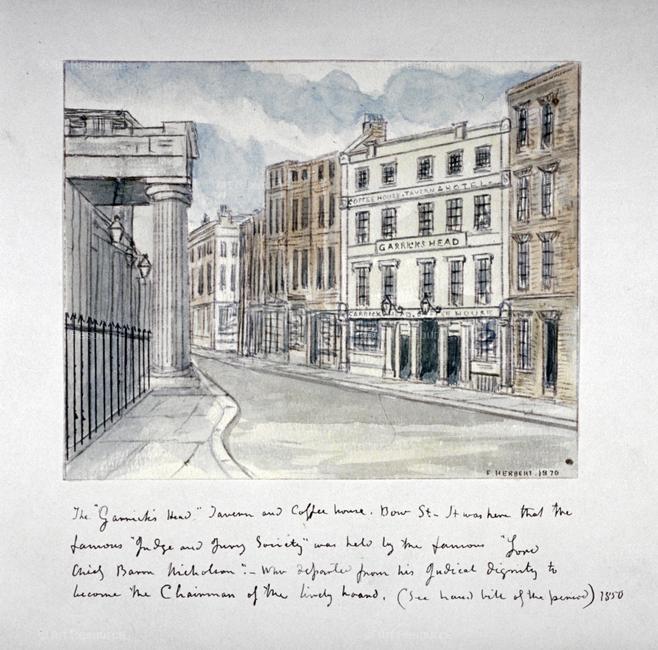 COFFEE HOUSE · TAVERN & HOTEL
GARRICKS HEAD
GARRICKS HEAD, COFFEE HOUSE
F. HERBERT. 1870
The "Garrick's Head" Tavern and Coffee house. Bow St - It was here that the
famous "Judge and Jury Society" was held by the famous "Lord
Chief Baron Nicholson" - Who departed from his Judical dignity to
become the Chairman of the lively board. (See hand bill of the period) 1850